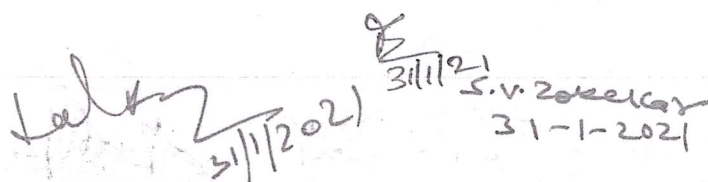 31/1/2021
31/1/21
S.V. Zokekar
31-1-2021